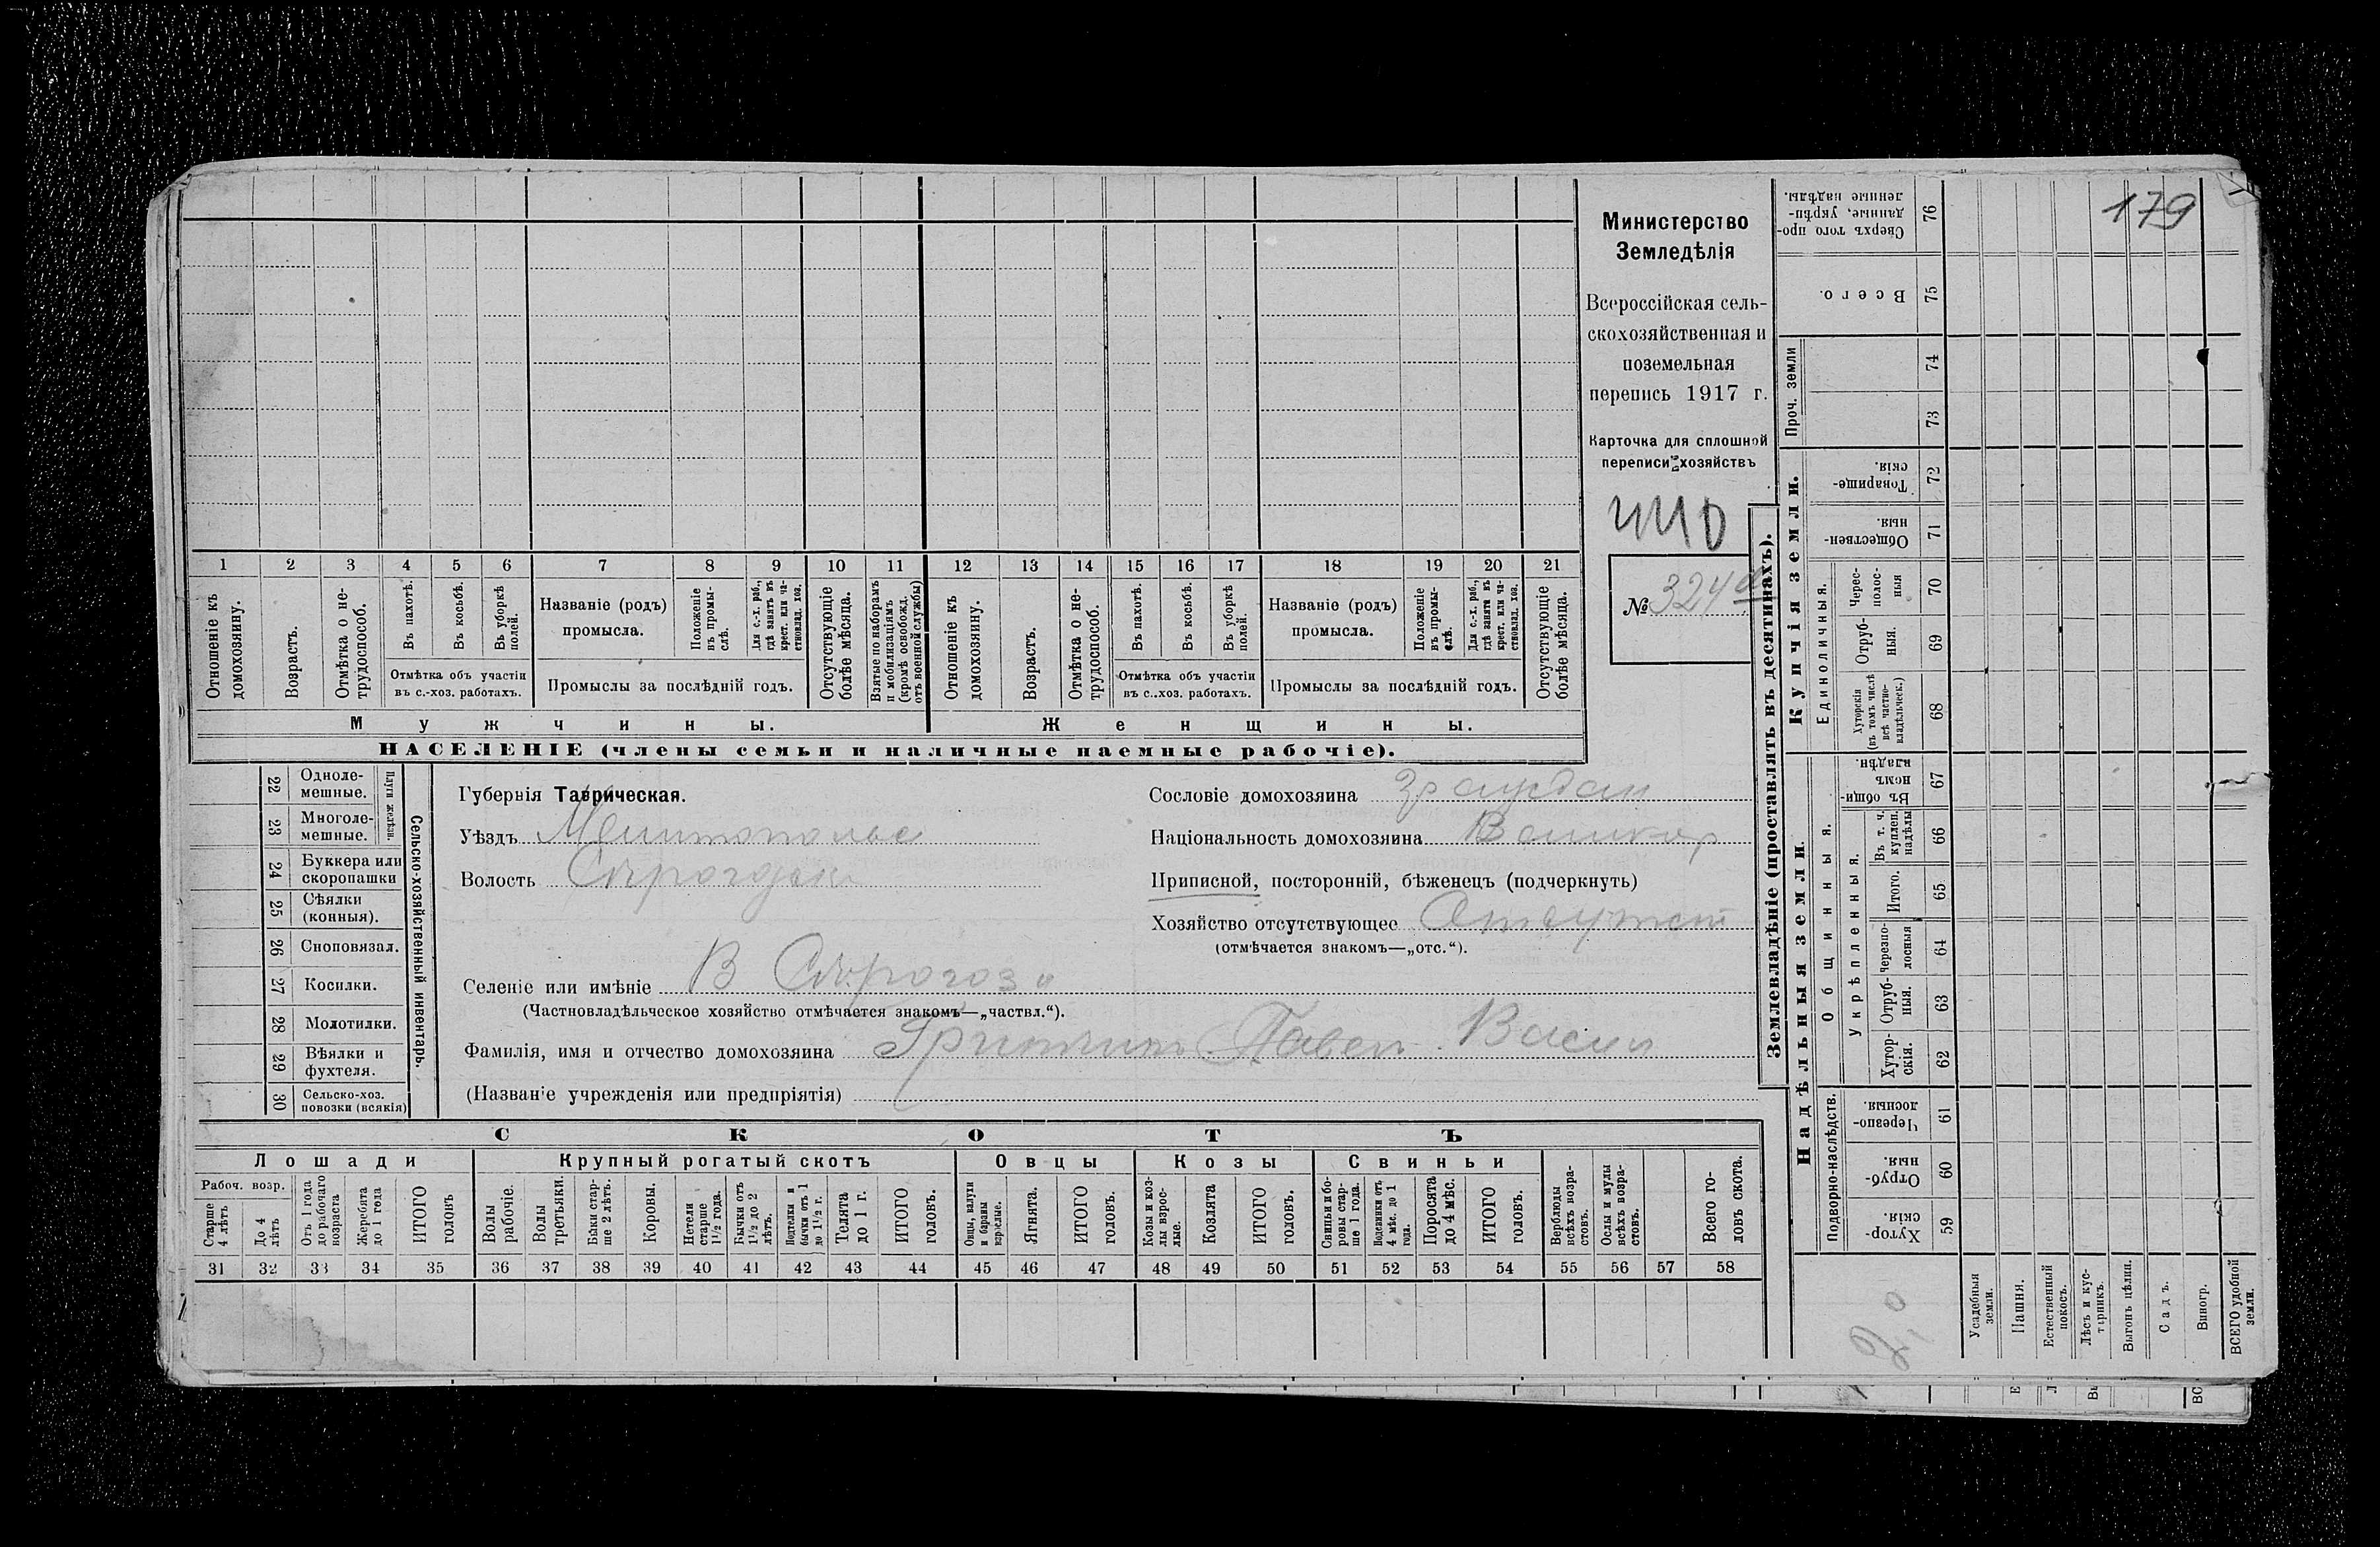 179
Министерство
Земледѣлія
Всероссійская сель-
скохозяйственная и
поземельная
перепись 1917 г.
Карточка для сплошной
переписи хозяйствъ
№ 324
1 2 3 4 5 6 7 8 9 10 11 12 13 14 15 16 17 18 19 20 21
Отношеніе къ домохозяину.
Возрастъ.
Отмѣтка о не-трудоспособ.
Въ пахотѣ.
Въ косьбѣ.
Въ уборкѣ полей.
Отмѣтка объ участіи
въ с.-хоз. работахъ.
Названіе (родъ)
промысла.
Положеніе въ промы-слѣ.
Для с.-х. раб., гдѣ занятъ въ крест. или ча-стновлад. хоз.
Промыслы за послѣдній годъ.
Отсутствующіе болѣе мѣсяца.
Взятые по наборамъ и мобилизаціямъ (кромѣ освобожд. отъ военной службы)
Отношеніе къ домохозяину.
Возрастъ.
Отмѣтка о не-трудоспособ.
Въ пахотѣ.
Въ косьбѣ.
Въ уборкѣ полей.
Отмѣтка объ участіи
въ с..хоз. работахъ.
Названіе (родъ)
промысла.
Положеніе въ промы-слѣ.
Для с.-х. раб., гдѣ заняти въ крест. или ча-ствовлад. хоз.
Промыслы за послѣдній годъ.
Отсутствующіе болѣе мѣсяца.
Мужчины.
Женщины.
НАСЕЛЕНІЕ (члены семьи и наличные наемные рабочіе).
Сельско-хозяйственный инвентарь.
Плуги желѣзн.
22 Одноле-мешные.
23 Многоле-мешные.
24 Буккера или скоропашки
25 Сѣялки (конныя).
26 Сноповязал.
27 Косилки.
28 Молотилки.
29 Вѣялки и фухтеля.
30 Сельско-хоз. повозки (всякія)
Губернія Таврическая.
Уѣздъ
Волость
Селеніе или имѣніе В Сѣрогоз
(Частновладѣльческое хозяйство отмѣчается знакомъ—„частвл.“).
Фамилія, имя и отчество домохозяина Павел Васил
(Названіе учрежденія или предпріятія)
Сословіе домохозяина граждан
Національность домохозяина Великор
Приписной, посторонній, бѣженецъ (подчеркнуть)
Хозяйство отсутствующее Отсутст
(отмѣчается знакомъ—„отс.“).
СКОТЪ
Лошади
Крупный рогатый скотъ
Овцы
Козы
Свиньи
Рабоч. возр.
Старше 4 лѣтъ
До 4 лѣтъ
Отъ 1 года до рабочаго возраста
Жеребята до 1 года
ИТОГО головъ
Волы рабочіе.
Волы третьяки.
Быки стар-ше 2 лѣтъ.
Коровы.
Нетели старше 1½ года.
Бычки отъ 1½ до 2 лѣтъ.
Подтелки и бычки отъ 1 до 1½ г.
Телята до 1 г.
ИТОГО головъ.
Овцы, валухи и бараны взрослые.
Ягнята.
ИТОГО головъ.
Козы и коз-лы взрос-лые.
Козлята
ИТОГО головъ.
Свиньи и бо-ровы стар-ше 1 года.
Подсвинки отъ 4 мѣс. до 1 года.
Поросята до 4 мѣс.
ИТОГО головъ.
Верблюды всѣхъ возра-стовъ.
Ослы и мулы всѣхъ возра-стовъ.
Всего го-ловъ скота.
31 32 33 34 35 36 37 38 39 40 41 42 43 44 45 46 47 48 49 50 51 52 53 54 55 56 57 58
Землевладѣніе (проставлять въ десятинахъ).
Купчія земли.
Надѣльныя земли
Сверхъ того про-данные, укрѣп-ленные надѣлы. 76
Всего. 75
Проч. земли
74
73
Товарище-скія. 72
Обществен-ныя. 71
Единоличныя.
Черес-полос-ныя 70
Отруб-ныя. 69
Хуторскія (въ томъ числѣ всѣ частно-владѣльческ.) 68
Общинныя.
Въ общи-номъ владѣн. 67
Укрѣпленныя.
Въ т. ч. куплен. надѣлы 66
Итого. 65
Черезпо-лосныя 64
Отруб-ныя. 63
Хутор-скія. 62
Подворно-наслѣдств.
Черезпо-лосныя. 61
Отруб-ныя. 60
Хутор-скія. 59
Усадебныя земли.
Пашня.
Естественный покосъ.
Лѣсъ и кус-тарникъ.
Выгонъ цѣлин.
Садъ.
Виногр.
ВСЕГО удобной земли.